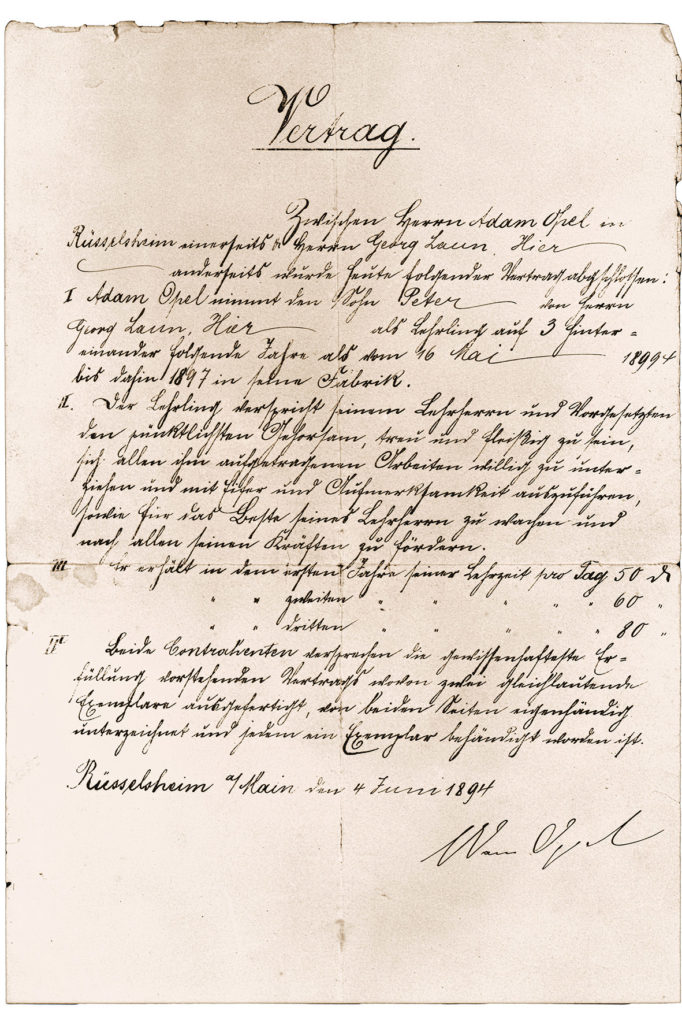 Vertrag.
Zwischen Herrn Adam Opel in
Rüsselsheim einerseits & Herrn Georg Laun, Hier
anderseits wurde heute folgender Vertrag abgeschlossen:
I Adam Opel nimmt den Sohn Peter von Herrn
Georg Laun, Hier als Lehrling auf 3 hinter-
einander folgende Jahre als vom 16 Mai 1894
bis dahin 1897 in seine Fabrik.
II. Der Lehrling verspricht seinem Lehrherrn und Vorgesetzten
den pünktlichsten Gehorsam, treu und fleißig zu sein,
sich allen ihm aufgetragenen Arbeiten willig zu unter-
ziehen und mit Eifer und Aufmerksamkeit auszuführen,
sowie für das Beste seines Lehrherrn zu wachen und
nach allen seinen Kräften zu fördern.
III Er erhält in dem ersten Jahre seiner Lehrzeit pro Tag 50 d
" " zweiten " " " " " 60 "
" " dritten " " " " " 80 "
IV Beide Contrahenten versprechen die gewissenhafteste Er-
füllung vorstehenden Vertrags wovon zwei gleichlautende
Exemplare ausgefertigt, von beiden Seiten eigenhändig
unterzeichnet und jedem ein Exemplar behändigt worden ist.
Rüsselsheim a/Main den 4 Juni 1894
Adam Opel